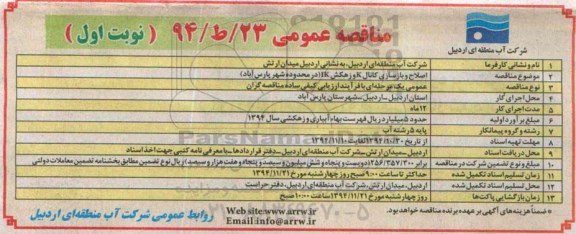 مناقصه عمومی ۲۳/ط/۹۴ ( نوبت اول )
شرکت آب منطقه ای اردبیل
۱ نام و نشانی کارفرما شرکت آب منطقه‌ای اردبیل، به نشانی اردبیل میدان ارتش
۲ موضوع مناقصه اصلاح و بازسازی کانال K و زهکش K (در محدوده شهر پارس آباد)
۳ نوع مناقصه عمومی یک مرحله‌ای با فرآیند ارزیابی کیفی ساده مناقصه گران
۴ محل اجرای کار استان اردبیل ـ اردبیل ـ شهرستان پارس آباد
۵ مدت اجرای کار ۱۲ ماه
۶ مبلغ برآورد اولیه حدود ۵ میلیارد ریال فهرست بهاء آبیاری و زهکشی سال ۱۳۹۴
۷ رشته و گروه پیمانکار پایه ۵ رشته آب
۸ مهلت تهیه اسناد از تاریخ
۹ محل دریافت اسناد اردبیل ـ میدان ارتش ـ شرکت آب منطقه‌ای اردبیل ـ دفتر قراردادها با معرفی نامه کتبی جهت اخذ اسناد
۱۰ مبلغ و نوع تضمین شرکت در مناقصه برابر ۲۵۶/۳۵۷/۳۰۰ (دویست و پنجاه و شش میلیون و سیصد و پنجاه و هفت هزار و سیصد) ریال نوع تضمین مطابق بخشنامه تضمین معاملات دولتی
۱۱ زمان تسلیم اسناد تکمیل شده حداکثر تا ساعت ۹:۰۰ صبح روز چهارشنبه مورخ ۱۳۹۴/۱۱/۲۱
۱۲ محل تسلیم اسناد تکمیل شده اردبیل، میدان ارتش، شرکت آب منطقه‌ای اردبیل، دفتر حراست
۱۳ زمان بازگشایی پاکت‌ها روز چهارشنبه مورخ ۱۳۹۴/۱۱/۲۱ ساعت ۱۰:۰۰ صبح
* ضمناً هزینه‌های آگهی بر عهده برنده مناقصه خواهد بود.
Web site:www.arrw.ir
Email:info@arrw.ir
روابط عمومی شرکت آب منطقه‌ای اردبیل